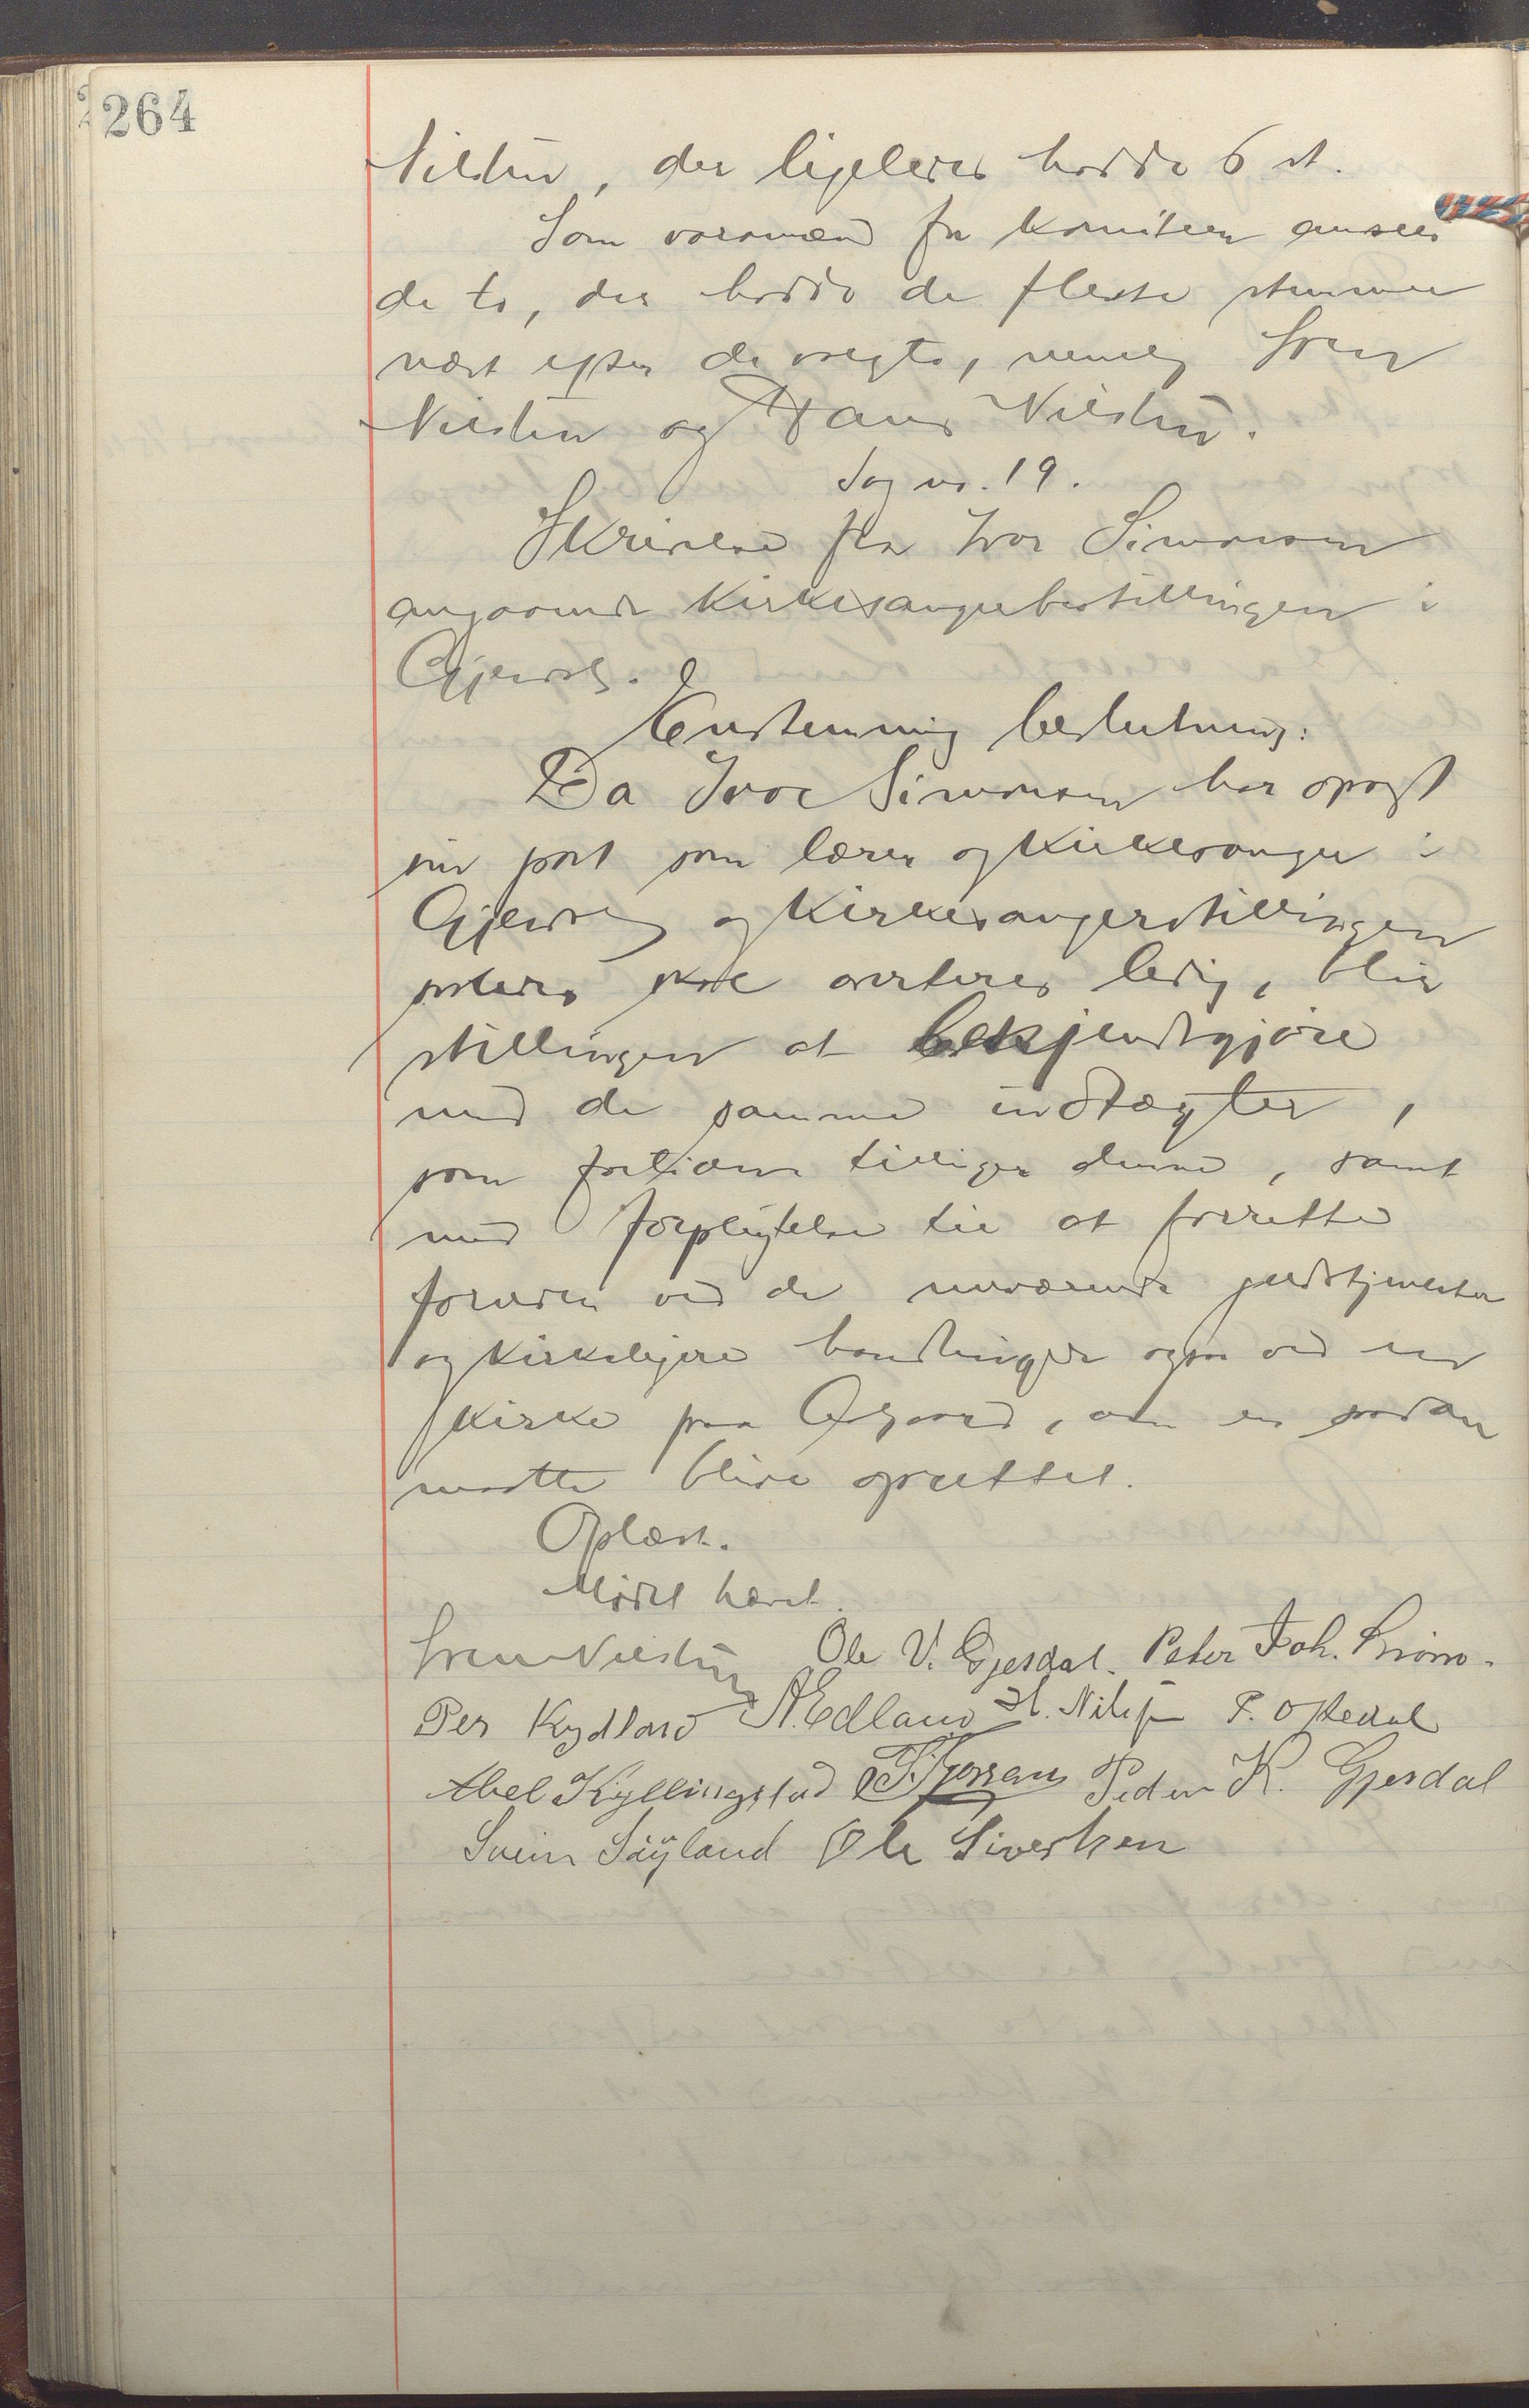 264
Nilsen, der ligeledes havde 6 st.
Som varamænd for komiteen ansees
de to, der havde de fleste stemmer
næst efter de valgte, nemlig Sven
Nilsen og Hans Nilsen.
Sag no. 19.
Skrivelse fra Ivar Simonsen
angaaende kirkesangerbestillingen i
Gjesdal.
Enstemmig beslutning:
Da Ivar Simonsen har opsagt
sin post som lærer og kirkesanger i
Gjesdal og kirkesangerstillingen
saaledes skal averteres ledig, blir
stillingen at bekjendtgjøre
med de samme indtægter,
som fortiden tilligger denne, samt
med forpligtelse til at forrette
foruden ved de nuværende gudstjenester
og kirkeligere handlinger ogsaa ved en
kirke paa Aalgaard, om en saadan
maatte blive oprettet.
Oplæst.
Mødet hævet.
Sven Nilsen Ole V. Gjesdal. Peter Joh.
Per Kydland A. Edland H. Nilsen T. Oftedal
Abel Kyllingstad Peder K. Gjesdal
Svein Söyland Ole Sivertsen